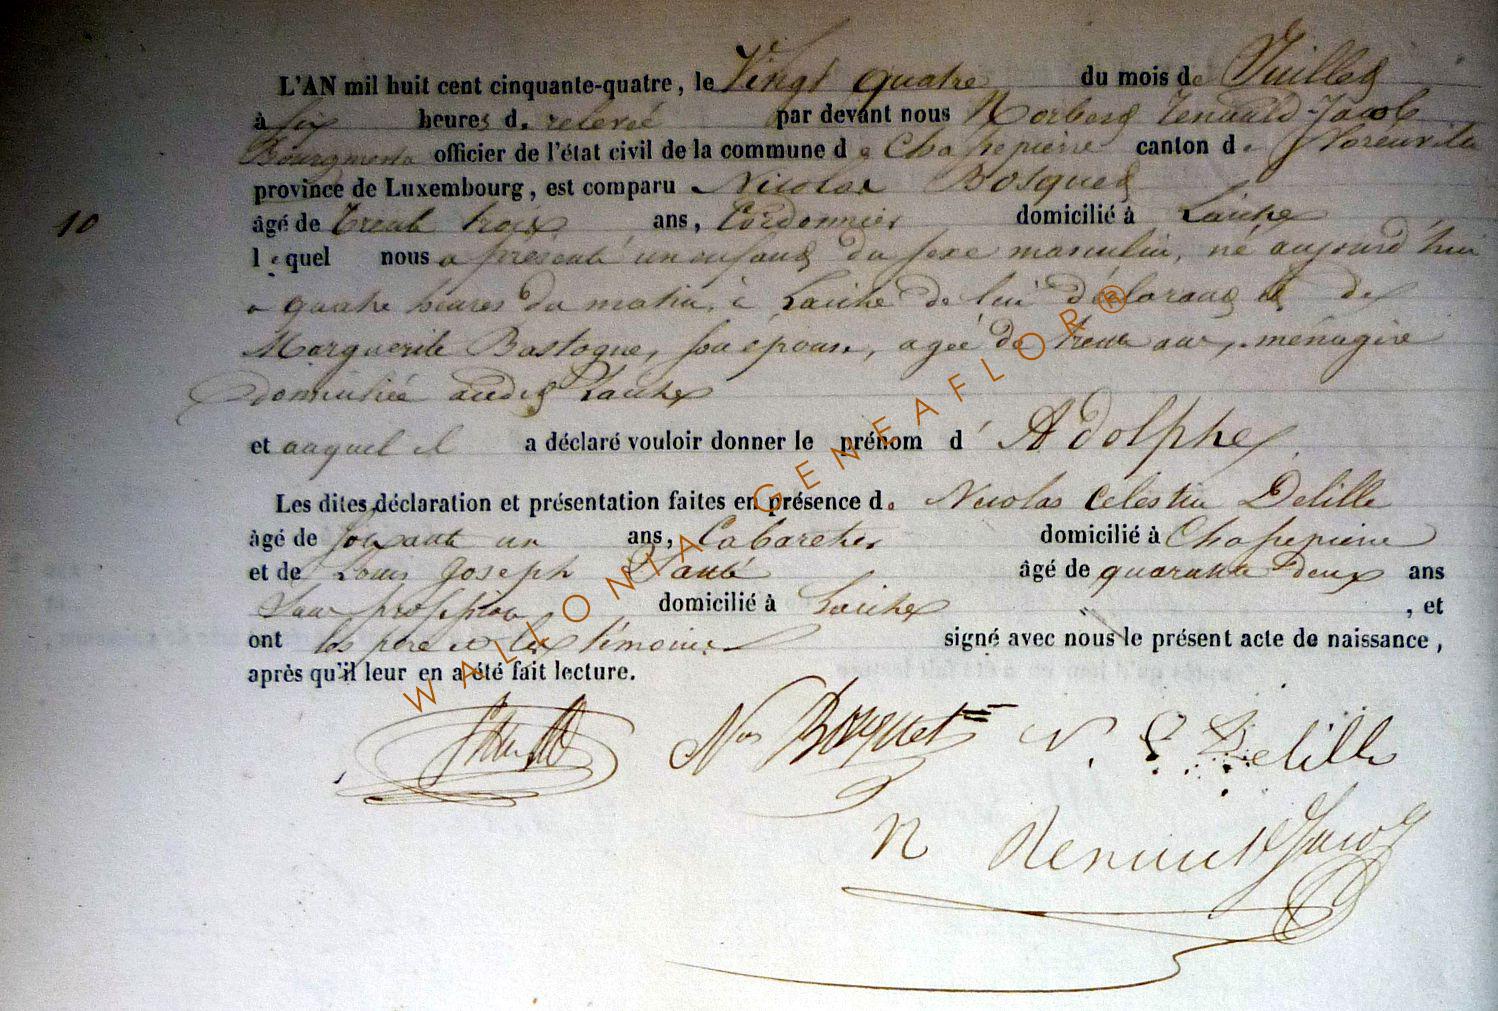 L'AN mil huit cent cinquante-quatre, le Vingt quatre du mois de Juillet
à six heures de relevée par devant nous Norbert Renauld-Jacob
Bourgmestre officier de l'état civil de la commune de Chassepierre canton de Florenville
province de Luxembourg, est comparu Nicolas Bosquet
10
âgé de trente trois ans, Cordonnier domicilié à Laiche
lequel nous a présenté un enfant du sexe masculin, né aujourd'hui
à quatre heures du matin, à Laiche de lui déclarant et de
Marguerite Bastogne, son épouse, agée de trente ans, ménagère
domiciliée audit Laiche
et auquel il a déclaré vouloir donner le prénom d' Adolphe
Les dites déclaration et présentation faites en présence de Nicolas Célestin Delille
âgé de soixante un ans, Cabaretier domicilié à Chassepierre
et de Louis Joseph âgé de quarante deux ans
sans profession domicilié à Laiche , et
ont les père et les témoins signé avec nous le présent acte de naissance,
après qu'il leur en a été fait lecture.
Nas Bosquet N. C. Delille
N Renauld Jacob
WALLONIA GENEAFLOR®